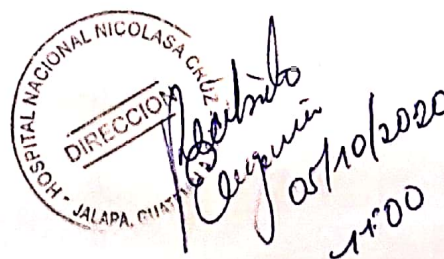 HOSPITAL NACIONAL NICOLASA CRUZ
DIRECCION
JALAPA, GUAT
Recibido
05/10/2020
11:00